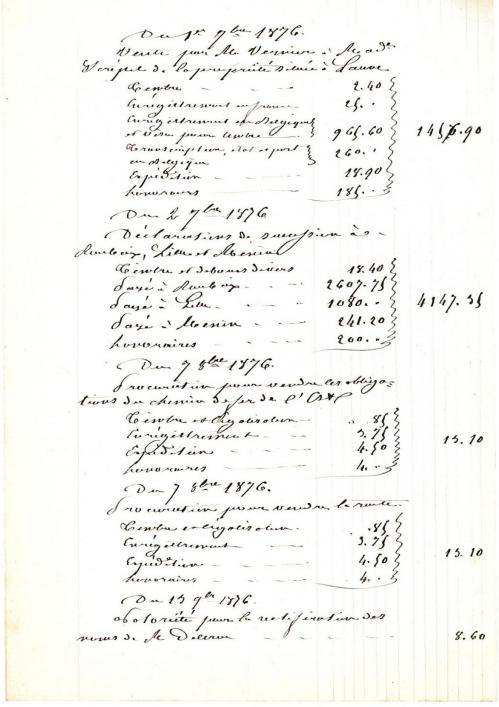 Du 1er 7bre 1876.
Vente par Me Vernier à Me adr
de la propriété située à Lauwe
Timbre 2.40
Enrégistrement en france 25..
Enrégistrement en Belgique
et visa pour timbre 965.60 1456.90
Transcription, état et port 260..
en Belgique
Expédition 18.90
honoraires 185..
Du 2 7bre 1876
Déclarations de succession à
Roubaix, Lille et Menin
Timbre et débours divers 18.40
Payé à Roubaix 2607.75
Payé à Lille 1080.. 4147.35
Payé à Menin 241.20
honoraires 200..
Du 7 8bre 1876.
Procuration pour vendre les obliga-
tions du chemin de fer de l'
Timbre et légalisation .85
Enrégistrement 3.75
Expédition 4.50 13.10
honoraires 4..
Du 7 8bre 1876.
Procuration pour vendre la rente
Timbre et légalisation .85
Enrégistrement 3.75
Expédition 4.50 13.10
honoraires 4..
Du 13 9bre 1876.
Notoriété pour la rectification des
noms de M 8.60